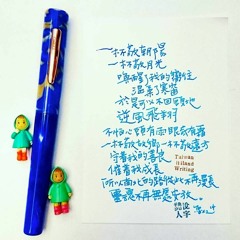 一杯敬朝陽
一杯敬月光
喚醒我的嚮往
溫柔了寒窗
於是可以不回頭地
逆風飛翔
不怕心頭有雨眼底有霜
一杯敬故鄉一杯敬遠方
守著我的善良
催著我成長
所以南北的路從此不再漫長
靈魂不再無處安放。
Taiwan
Island
Writing
人字